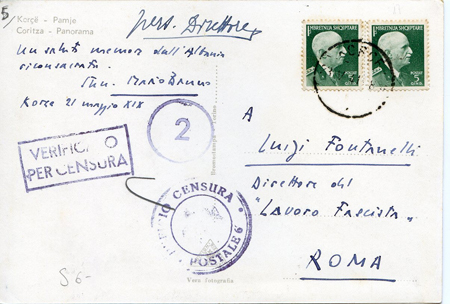 5/
Korçë - Pamje
Coritza - Panorama
pers. Direttore
Un saluto memore dall'Albania
riconsacrata.
Mario Bruno
Korça 21 maggio XIX
MBRETNIJA SHQIPTARE
MBRETNIJA SHQIPTARE
2
VERIFIC O
PER CENSURA
CENSURA
POSTALE 6
A
Luigi Fontanelli
Direttore del
"Lavoro Fascista"
ROMA
Vera fotografia
$ 6-